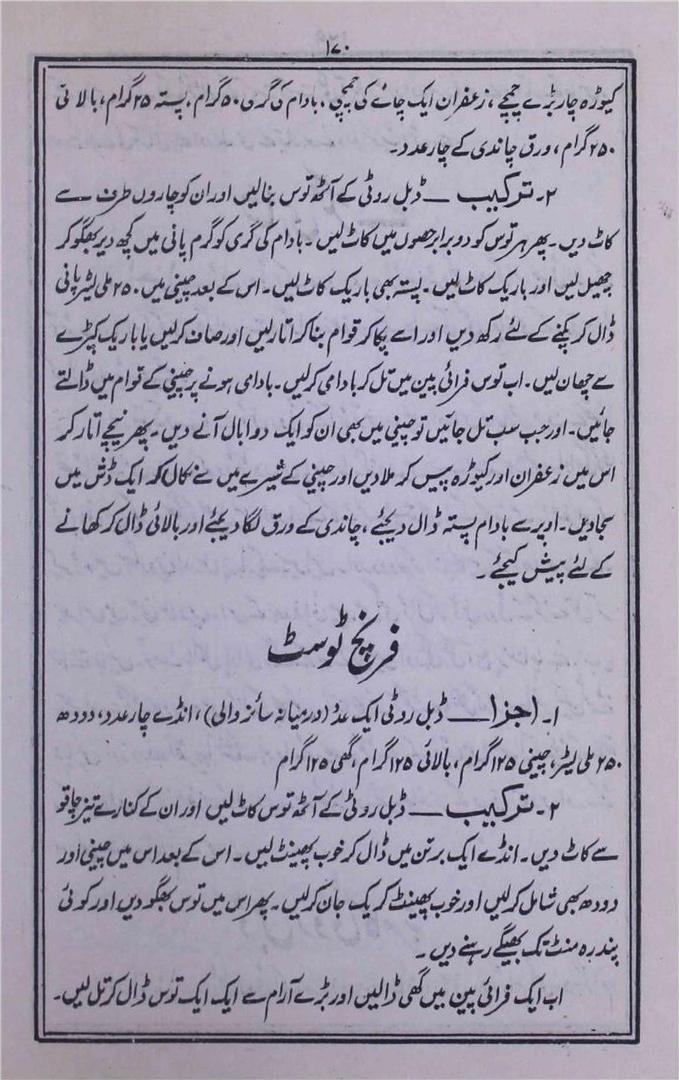 ۱۷۰
کیوڑہ چار بڑے چمچے، زعفران ایک چائے کی چمچی، بادام کی گری ۵۰ گرام، پستہ ۲۵ گرام، بالائی
۲۵۰ گرام، ورق چاندی کے چار عدد۔
۲۔ ترکیب ـــ ڈبل روٹی کے آٹھ توس بنالیں اور ان کو چاروں طرف سے
کاٹ دیں۔ پھر ہر توس کو دو برابر حصوں میں کاٹ لیں۔ بادام کی گری کو گرم پانی میں کچھ دیر بھگو کر
چھیل لیں اور باریک کاٹ لیں۔ پستہ بھی باریک کاٹ لیں۔ اس کے بعد چینی میں ۲۵۰ ملی لیٹر پانی
ڈال کر پکنے کے لئے رکھ دیں اور اسے پکا کر قوام بنا کر اتار لیں اور صاف کرلیں یا باریک کپڑے
سے چھان لیں۔ اب توس فرائی پین میں تل کر بادامی کرلیں۔ بادامی ہونے پر چینی کے قوام میں ڈالتے
جائیں۔ اور جب سب تل جائیں تو چینی میں بھی ان کو ایک دو ابال آنے دیں۔ پھر نیچے اتار کر
اس میں زعفران اور کیوڑہ پیس کر ملا دیں اور چینی کے شیرے میں سے نکال کر ایک ڈش میں
سجا دیں۔ اوپر سے بادام پستہ ڈال دیجئے، چاندی کے ورق لگا دیجئے اور بالائی ڈال کر کھانے
کے لئے پیش کیجئے۔
فرنچ ٹوسٹ
۱۔ اجزا ـــ ڈبل روٹی ایک عدد (درمیانہ سائز والی)، انڈے چار عدد، دودھ
۲۵۰ ملی لیٹر، چینی ۱۲۵ گرام، بالائی ۱۲۵ گرام، گھی ۱۲۵ گرام
۲۔ ترکیب ـــ ڈبل روٹی کے آٹھ توس کاٹ لیں اور ان کے کنارے تیز چاقو
سے کاٹ دیں۔ انڈے ایک برتن میں ڈال کر خوب پھینٹ لیں۔ اس کے بعد اس میں چینی اور
دودھ بھی شامل کرلیں اور خوب پھینٹ کر یک جان کرلیں۔ پھر اس میں توس بھگو دیں اور کوئی
پندرہ منٹ تک بھیگے رہنے دیں۔
اب ایک فرائی پین میں گھی ڈالیں اور بڑے آرام سے ایک ایک توس ڈال کر تل لیں۔